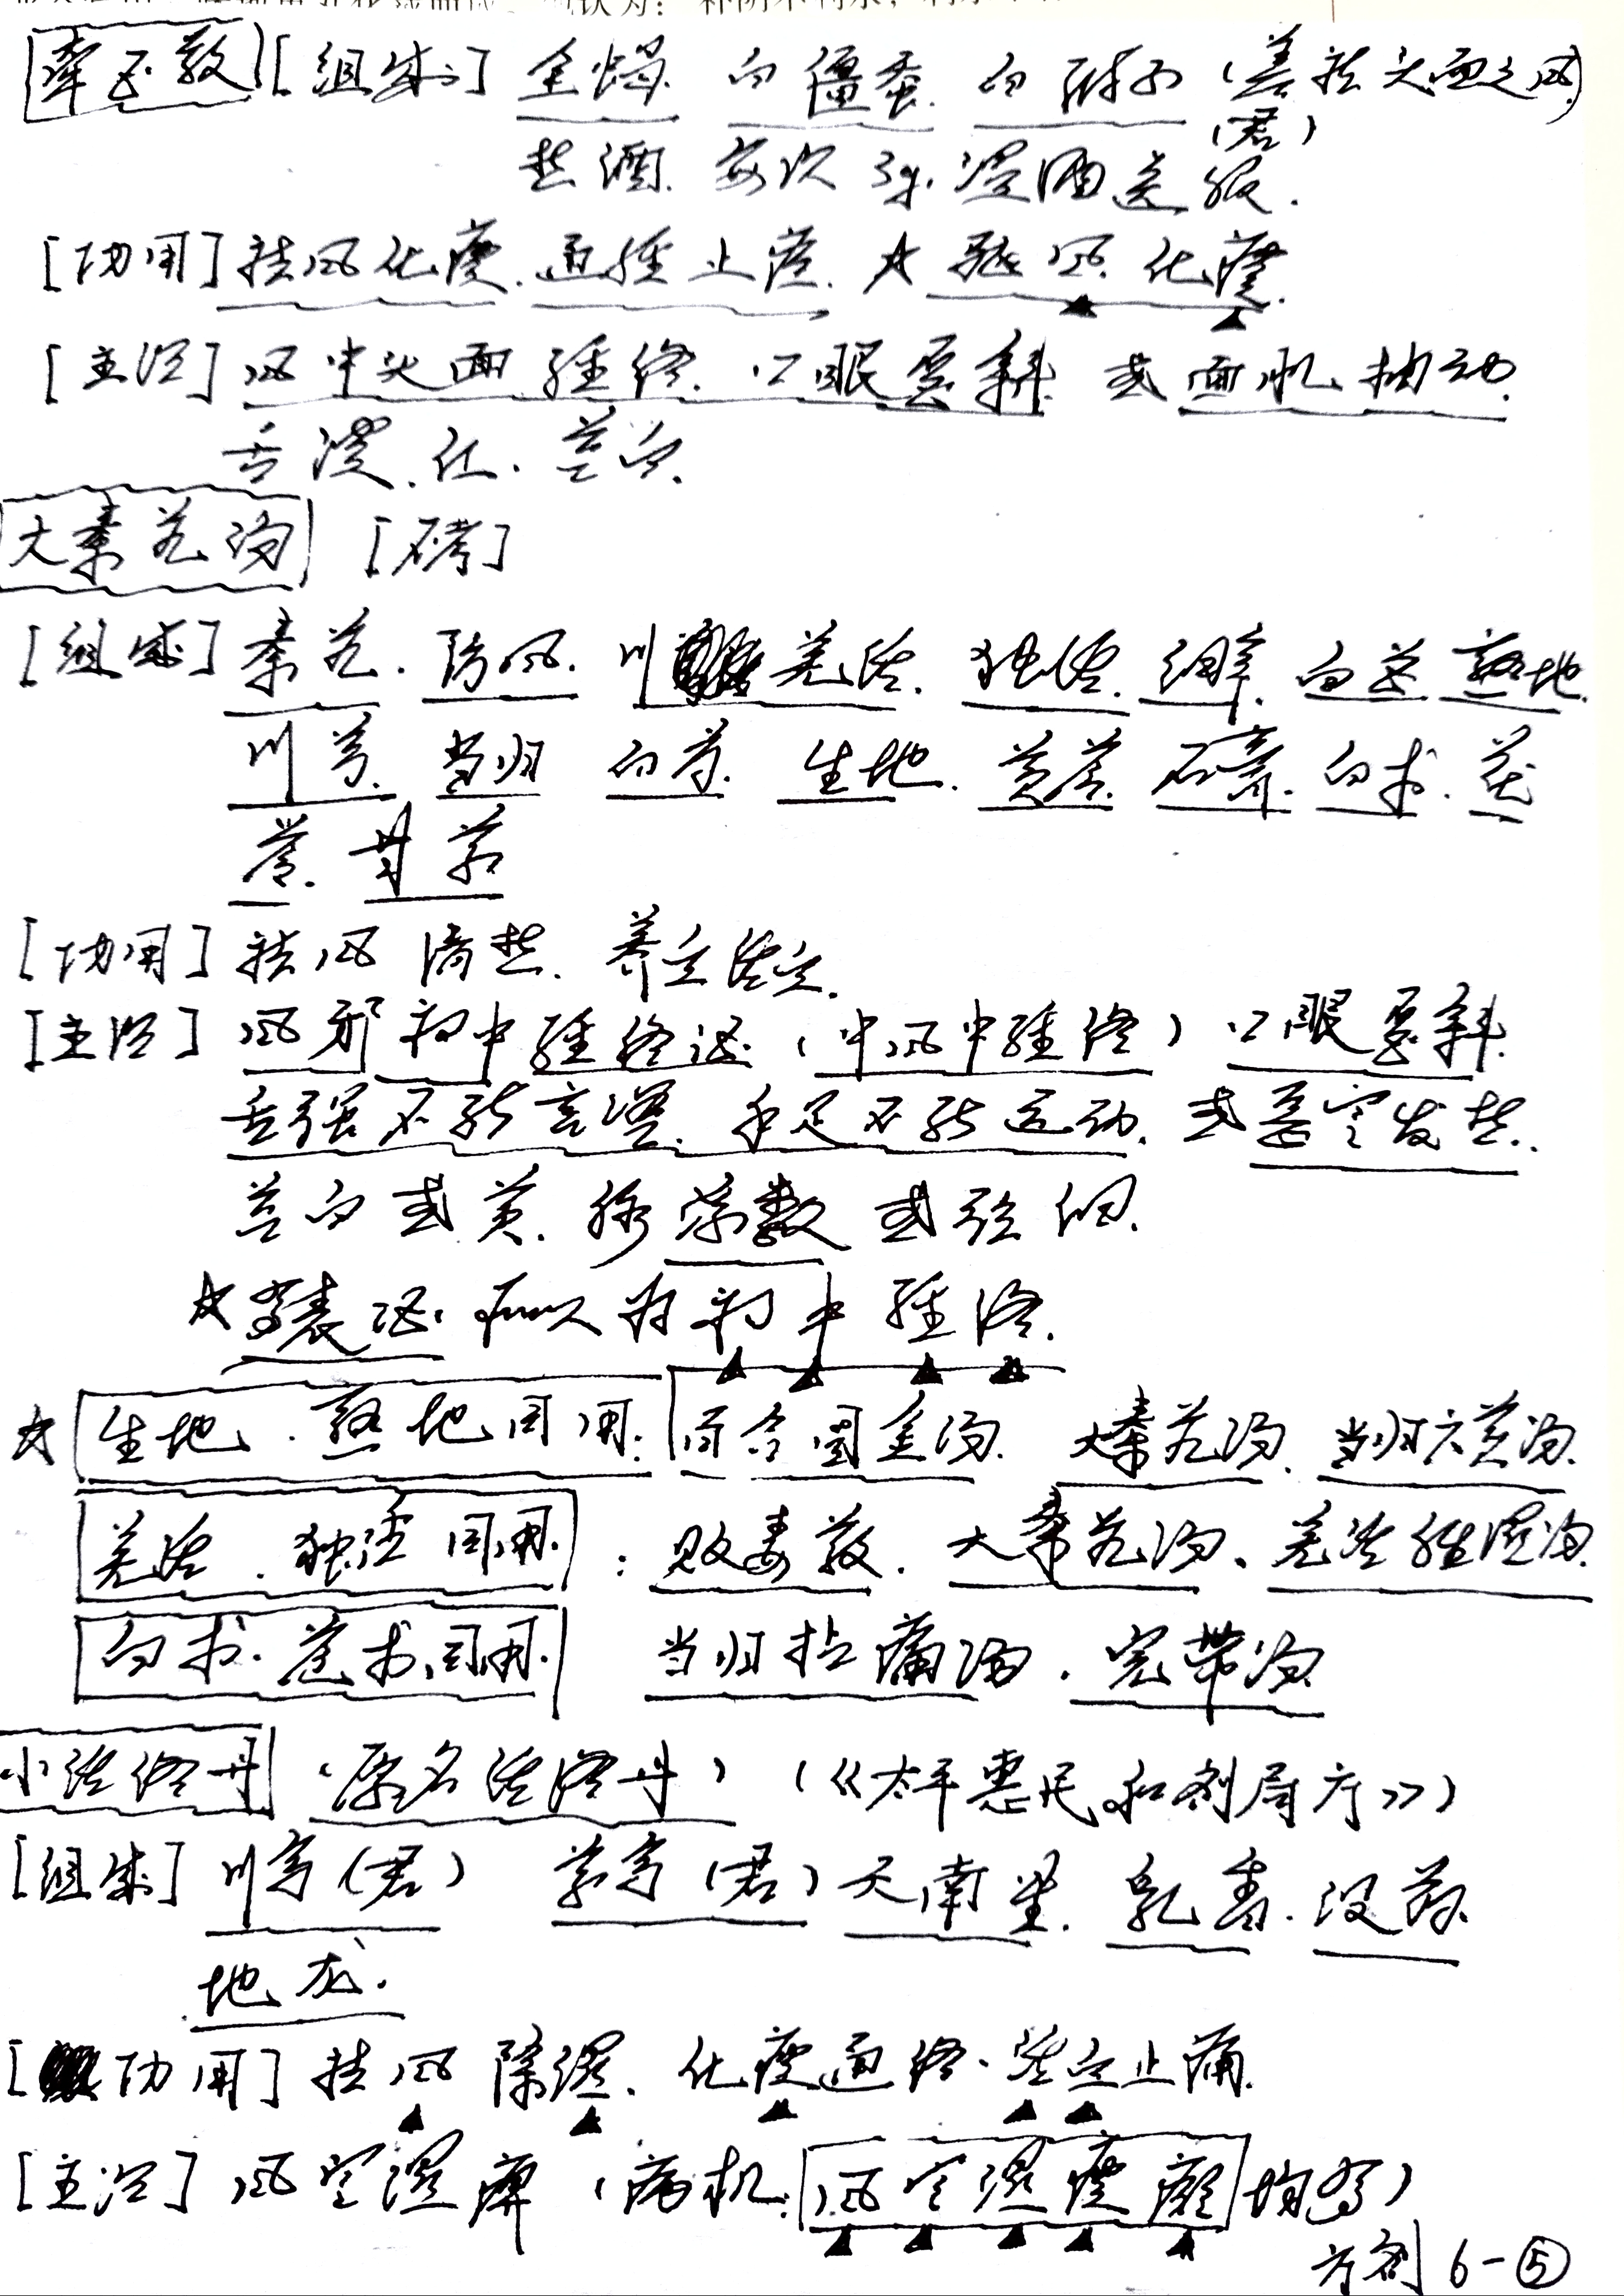 牵正散 [组成] 全蝎. 白僵蚕. 白附子 (善祛头面之风)
(君)
热酒. 每次3g. 温酒送服.
[功用] 祛风化痰. 通经止痉. ☆ 祛风. 化痰.
[主治] 风中头面经络. 口眼歪斜 或面肌抽动.
舌淡.红. 苔白.
大秦艽汤 [略考]
[组成] 秦艽. 防风. 川 羌活. 独活. 细辛. 白芷 熟地.
川芎. 当归 白芍. 生地. 黄芩. 石膏. 白术. 茯
苓. 甘草
[功用] 祛风 清热. 养血活血.
[主治] 风邪初中经络证. (中风中经络) 口眼歪斜.
舌强不能言语. 手足不能运动. 或恶寒发热.
苔白或黄. 脉浮数 或弦细.
☆ 有表证. 所以为初中经络.
☆ 生地. 熟地同用: 百合固金汤. 大秦艽汤. 当归六黄汤.
羌活. 独活同用: 败毒散. 大秦艽汤、羌活胜湿汤.
白术. 苍术同用. 当归拈痛汤. 完带汤.
小活络丹 (原名活络丹) (《太平惠民和剂局方》)
[组成] 川乌(君) 草乌(君) 天南星. 乳香. 没药.
地龙.
[功用] 祛风除湿. 化痰通络. 活血止痛.
[主治] 风寒湿痹 (病机: 风寒湿痰瘀 均有)
方剂 6-⑤